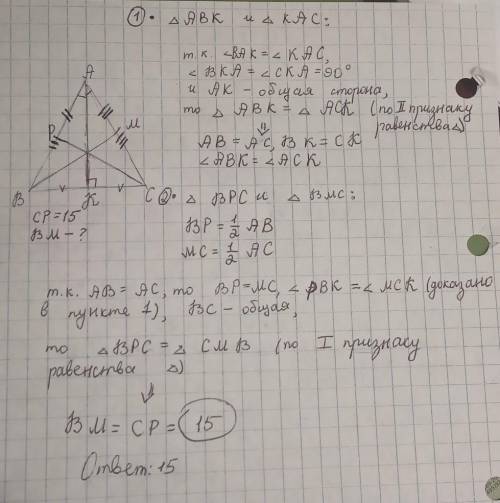 ① • △ ABK и △ KAC:
т.к. ∠BAK = ∠ KAC,
∠ BKA = ∠ CKA = 90°
и AK - общая сторона,
то △ ABK = △ ACK (по II признаку
равенства △)
⇓
AB = AC, BK = CK
∠ ABK = ∠ ACK
A
P
M
B
K
C
CP = 15
BM - ?
② • △ BPC и △ BMC:
BP = 1/2 AB
MC = 1/2 AC
т.к. AB = AC, то BP = MC, ∠ PBK = ∠ MCK (доказано
в пункте 1), BC - общая,
то △ BPC = △ CMB (по I признаку
равенства △)
⇓
BM = CP = 15
Ответ: 15